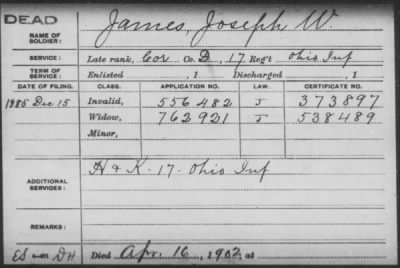 DEAD
NAME OF SOLDIER: James, Joseph W.
SERVICE: Late rank, Cor Co. D, 17 Reg't Ohio Inf
TERM OF SERVICE: Enlisted , 1 Discharged , 1
DATE OF FILING. CLASS. APPLICATION NO. LAW. CERTIFICATE NO.
1885 Dec 15 Invalid, 556482 J 373897
Widow, 762921 J 538489
Minor,
ADDITIONAL SERVICES: H & K. 17. Ohio Inf
REMARKS:
ES DH Died Apr. 16, 1902, at